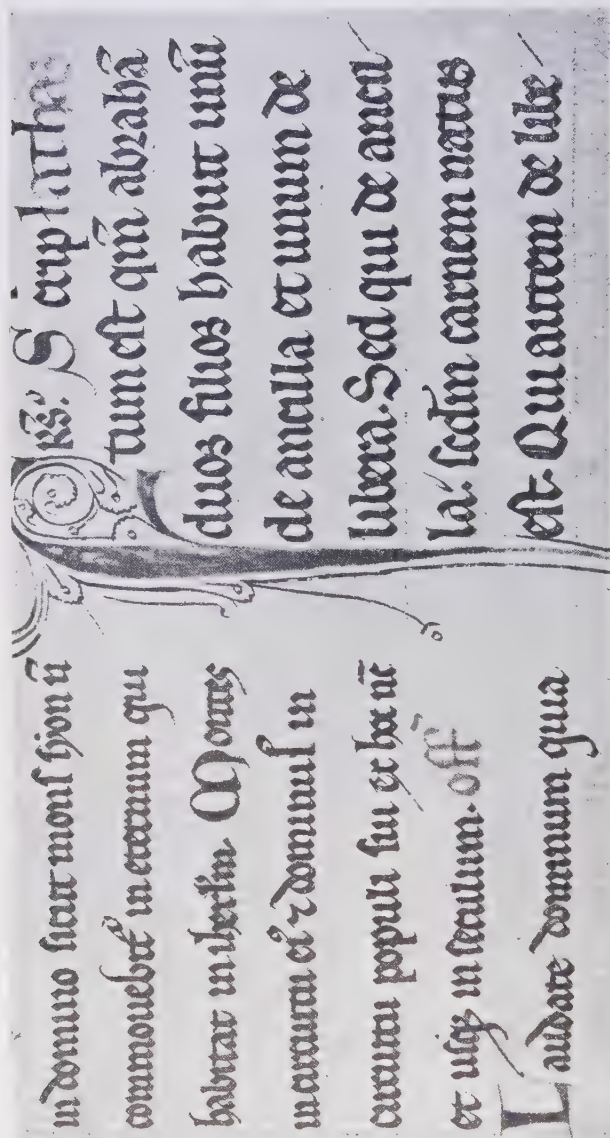 in domino sicut mons syon n̄
commouebit̄ in eternum qui
habitat in ihrl̄m. Montes
in circuitu ei⁹ ⁊ dominus in
circuitu populi sui ex hoc nūc
et usqꝫ in seculum. off̄
Laudate dominum quia
Scrip
tum est qm̄ abrahā
duos filios habuit unū
de ancilla et unum de
libera. Sed qui de ancil/
la: scd̄m carnem natus
est. Qui autem de libe/